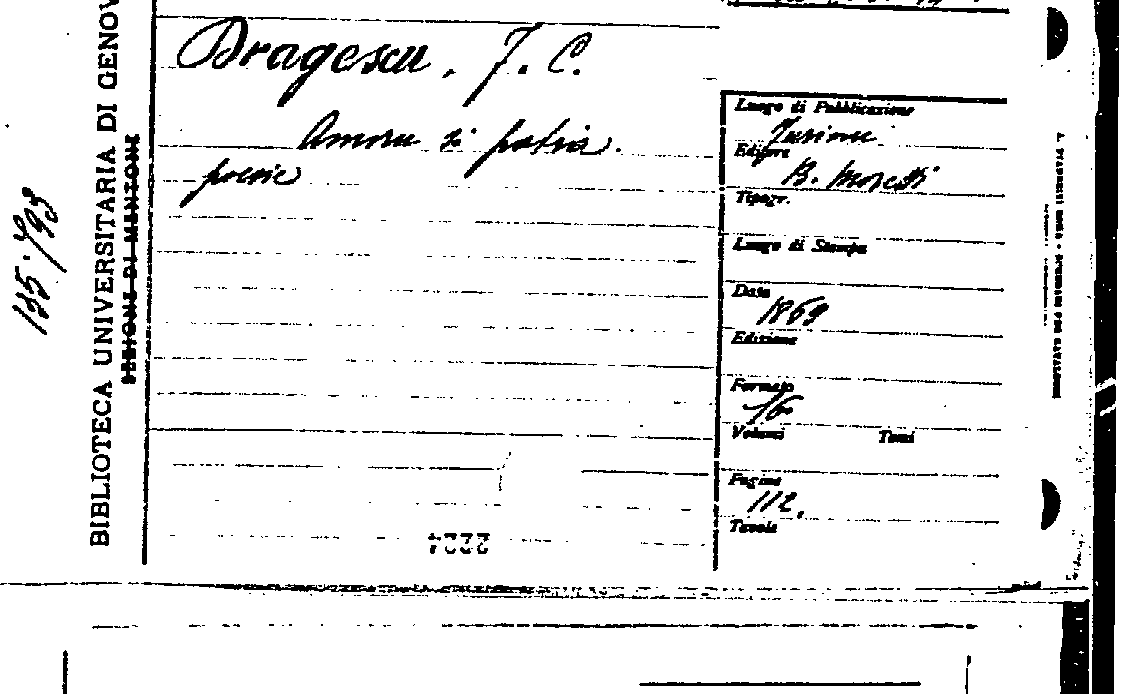 BIBLIOTECA UNIVERSITARIA DI GENOV
SEZIONE DI MENTONE
135·/93
Dragescu, J. C.
Amoru si patria.
poesie
Luogo di Pubblicazione
Editore
B. Moretti
Tipogr.
Luogo di Stampa
Data
1869
Edizione
Formato
16°
Volumi Tomi
Pagine
112.
Tavole
2224